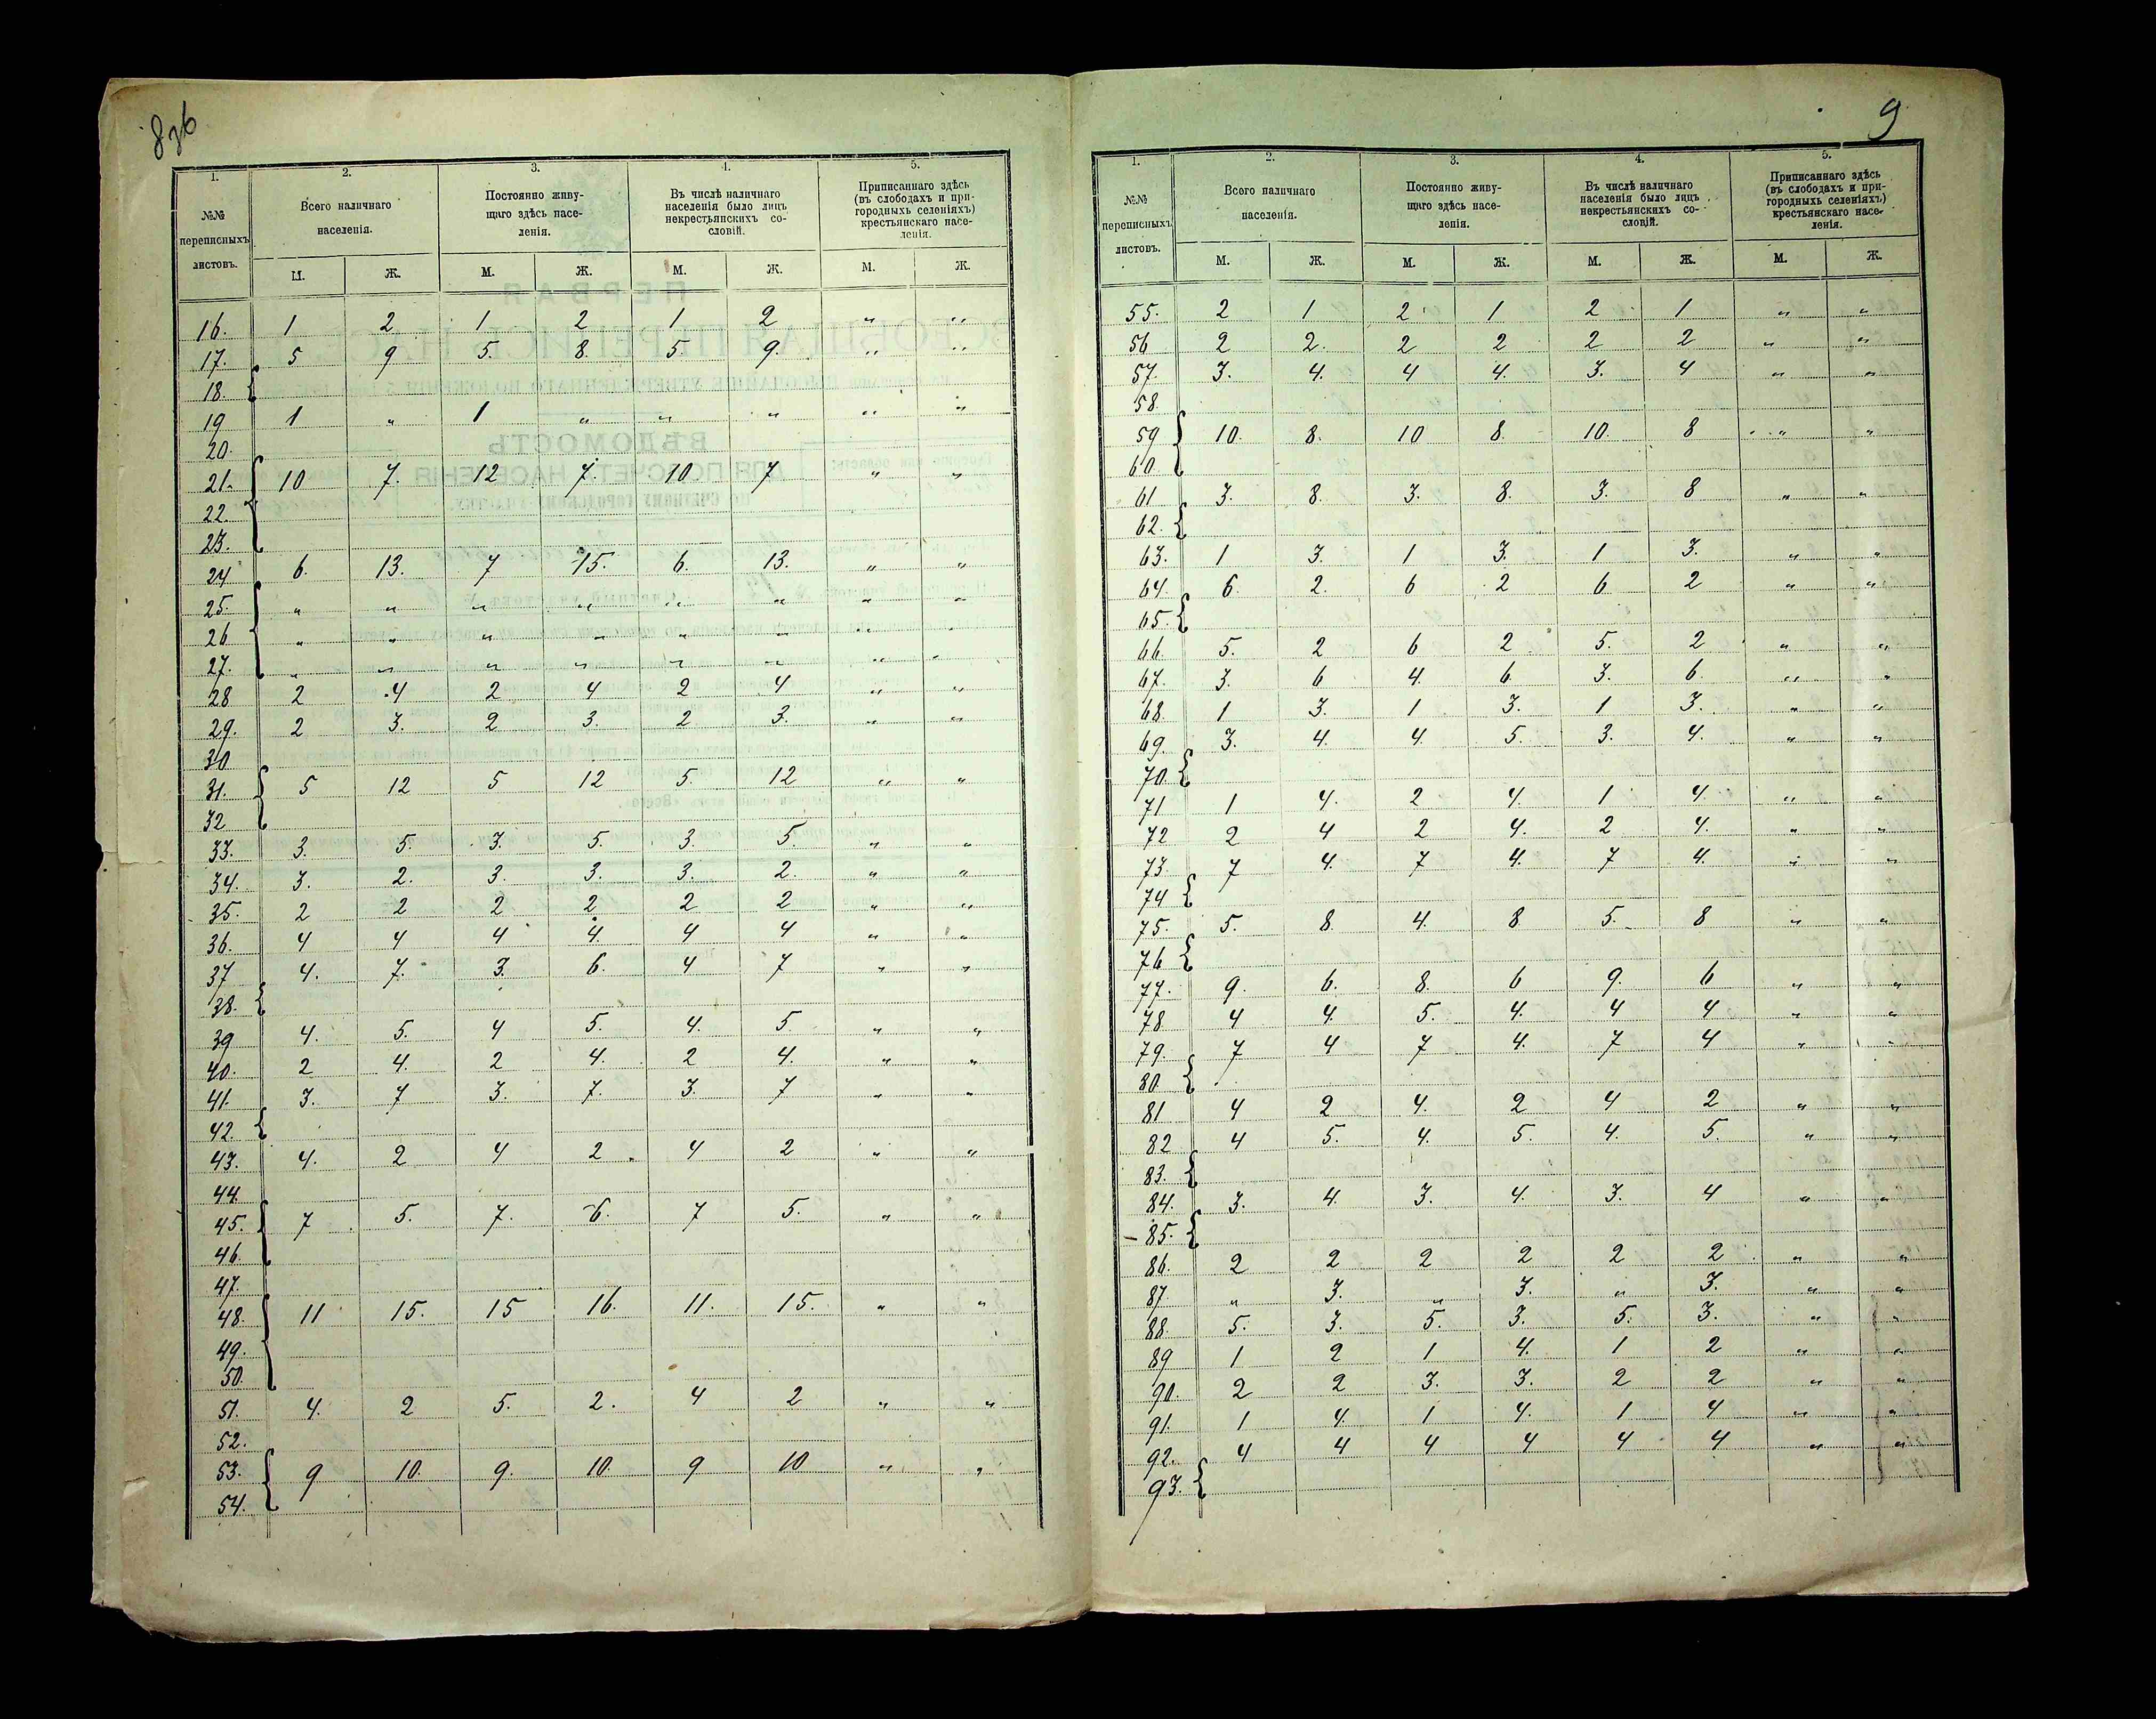 8 об
1.
2.
3.
4.
5.
№№ переписныхъ листовъ.
Всего наличнаго населенія.
Постоянно живущаго здѣсь населенія.
Въ числѣ наличнаго населенія было лицъ некрестьянскихъ сословій.
Приписаннаго здѣсь (въ слободахъ и пригородныхъ селеніяхъ) крестьянскаго населенія.
М. Ж. М. Ж. М. Ж. М. Ж.
16. 1 2 1 2 1 2 " "
17. 5 9 5. 8. 5 9. " "
18.
19 1 " 1 " " " " "
20.
21. 10 7. 12 7. 10 7 " "
22.
23.
24 6. 13. 7 15. 6. 13. " "
25. " " " " " " " "
26 " " " " " " " "
27. " " " " " " " "
28 2 4 2 4 2 4 " "
29. 2 3. 2 3. 2 3. " "
30
31. 5 12 5 12 5. 12 " "
32
33. 3. 5. 3. 5. 3. 5. " "
34. 3. 2. 3. 3. 3. 2. " "
35. 2 2 2 2 2 2 " "
36. 4 4 4 4. 4 4 " "
37 4. 7. 3. 6. 4 7 " "
38.
39 4. 5. 4 5. 4. 5 " "
40. 2 4. 2 4. 2 4. " "
41. 3. 7 3. 7. 3. 7 " "
42.
43. 4. 2 4 2 4 2 " "
44.
45. 7 5. 7. 6. 7 5. " "
46.
47.
48. 11 15. 15 16. 11. 15. " "
49.
50.
51. 4. 2 5. 2. 4 2 " "
52.
53. 9 10. 9. 10 9 10 " "
54.
9
1.
2.
3.
4.
5.
№№ переписныхъ листовъ.
Всего наличнаго населенія.
Постоянно живущаго здѣсь населенія.
Въ числѣ наличнаго населенія было лицъ некрестьянскихъ сословій.
Приписаннаго здѣсь (въ слободахъ и пригородныхъ селеніяхъ) крестьянскаго населенія.
М. Ж. М. Ж. М. Ж. М. Ж.
55. 2 1 2 1 2 1 " "
56 2 2. 2 2 2 2 " "
57. 3. 4. 4 4. 3. 4 " "
58.
59 10. 8. 10 8. 10. 8 " "
60.
61 3. 8. 3. 8. 3. 8 " "
62.
63. 1 3. 1 3. 1 3. " "
64. 6. 2. 6 2 6 2 " "
65.
66. 5. 2 6 2 5. 2 " "
67. 3. 6 4 6. 3. 6. " "
68. 1 3. 1 3. 1 3. " "
69. 3. 4. 4. 5. 3. 4. " "
70.
71 1 4. 2 4. 1 4. " "
72 2 4 2 4. 2 4. " "
73. 7 4. 7 4. 7 4. " "
74
75. 5. 8. 4. 8 5. 8 " "
76
77. 9. 6. 8. 6 9. 6 " "
78. 4 4. 5. 4. 4 4 " "
79. 7 4 7 4. 7 4 " "
80.
81 4 2 4. 2 4 2 " "
82 4 5. 4. 5. 4. 5. " "
83.
84. 3. 4. 3. 4. 3. 4 " "
85.
86. 2 2 2 2 2 2 " "
87. " 3. " 3. " 3. " "
88. 5. 3. 5. 3. 5. 3. " "
89 1 2 1 4. 1 2 " "
90. 2 2 3. 3. 2 2 " "
91. 1 4. 1 4. 1 4 " "
92. 4 4 4 4 4 4 " "
93.